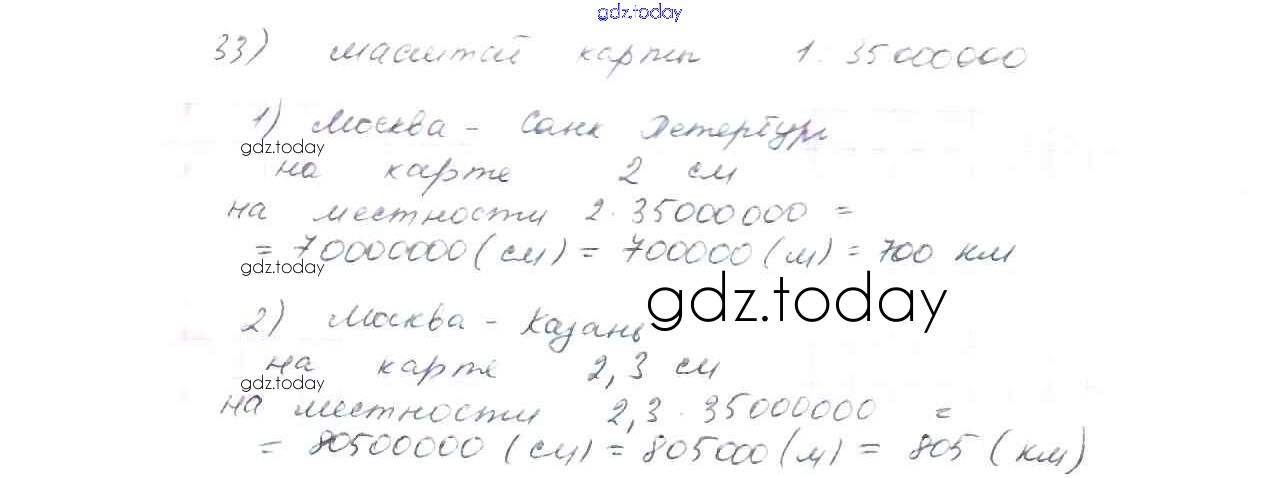 gdz.today
33) масштаб карты 1:35000000
1) Москва - Санк Петербург
gdz.today
на карте 2 см
на местности 2·35000000 =
= 70000000 (см) = 700000 (м) = 700 км
gdz.today
gdz.today
2) Москва - Казань
на карте 2,3 см
gdz.today
на местности 2,3·35000000 =
= 80500000 (см) = 805000 (м) = 805 (км)